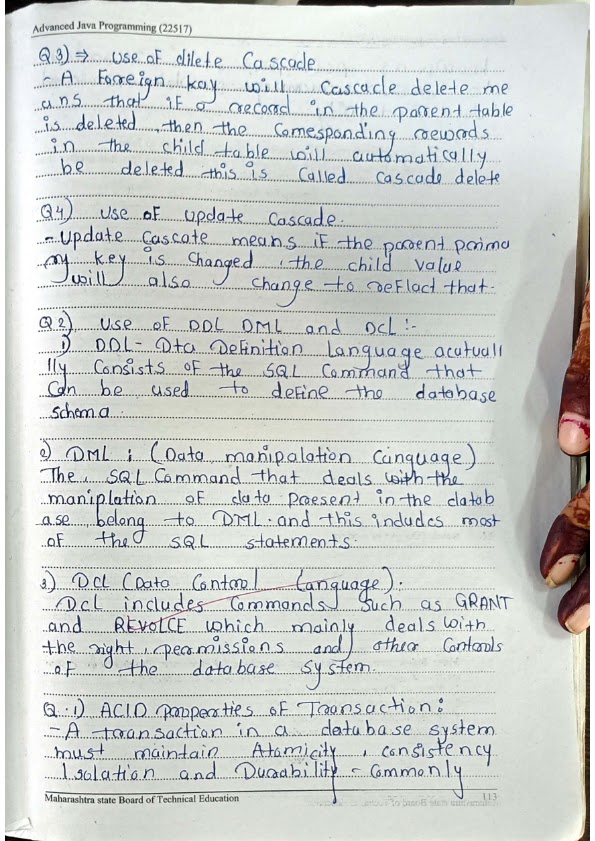 Advanced Java Programming (22517)
Q.3) ⇒ use of dilete Cascade
- A Foreign kay will Cascade delete me
ans that if a record in the parent table
is deleted, then the Corresponding rewords
in the child table will automatically
be deleted this is Called cascade delete
Q4) use of update Cascade.
- Update Cascate means if the parent prima
ry key is changed, the child value
will also change to reflact that.
Q2) Use of DDL DML and DCL :-
1) DDL - Dta Definition Language acutuall
lly Consists of the SQL Command that
Can be used to define the database
schema.
2) DML : (Data manipalation Canguage)
The, SQL Command that deals with the
maniplation of data present in the datab
ase belong to DML. and this includes most
of the SQL statements.
3) DCL (Data Control Language).
DCL includes Commands such as GRANT
and REVOLCE which mainly deals with
the right, permissions and other Controls
of the database system.
Q.1) ACID properties of Transaction:
- A transaction in a database system
must maintain Atomicity, consistency
Isolation and Durability - Commonly
Maharashtra state Board of Technical Education
113